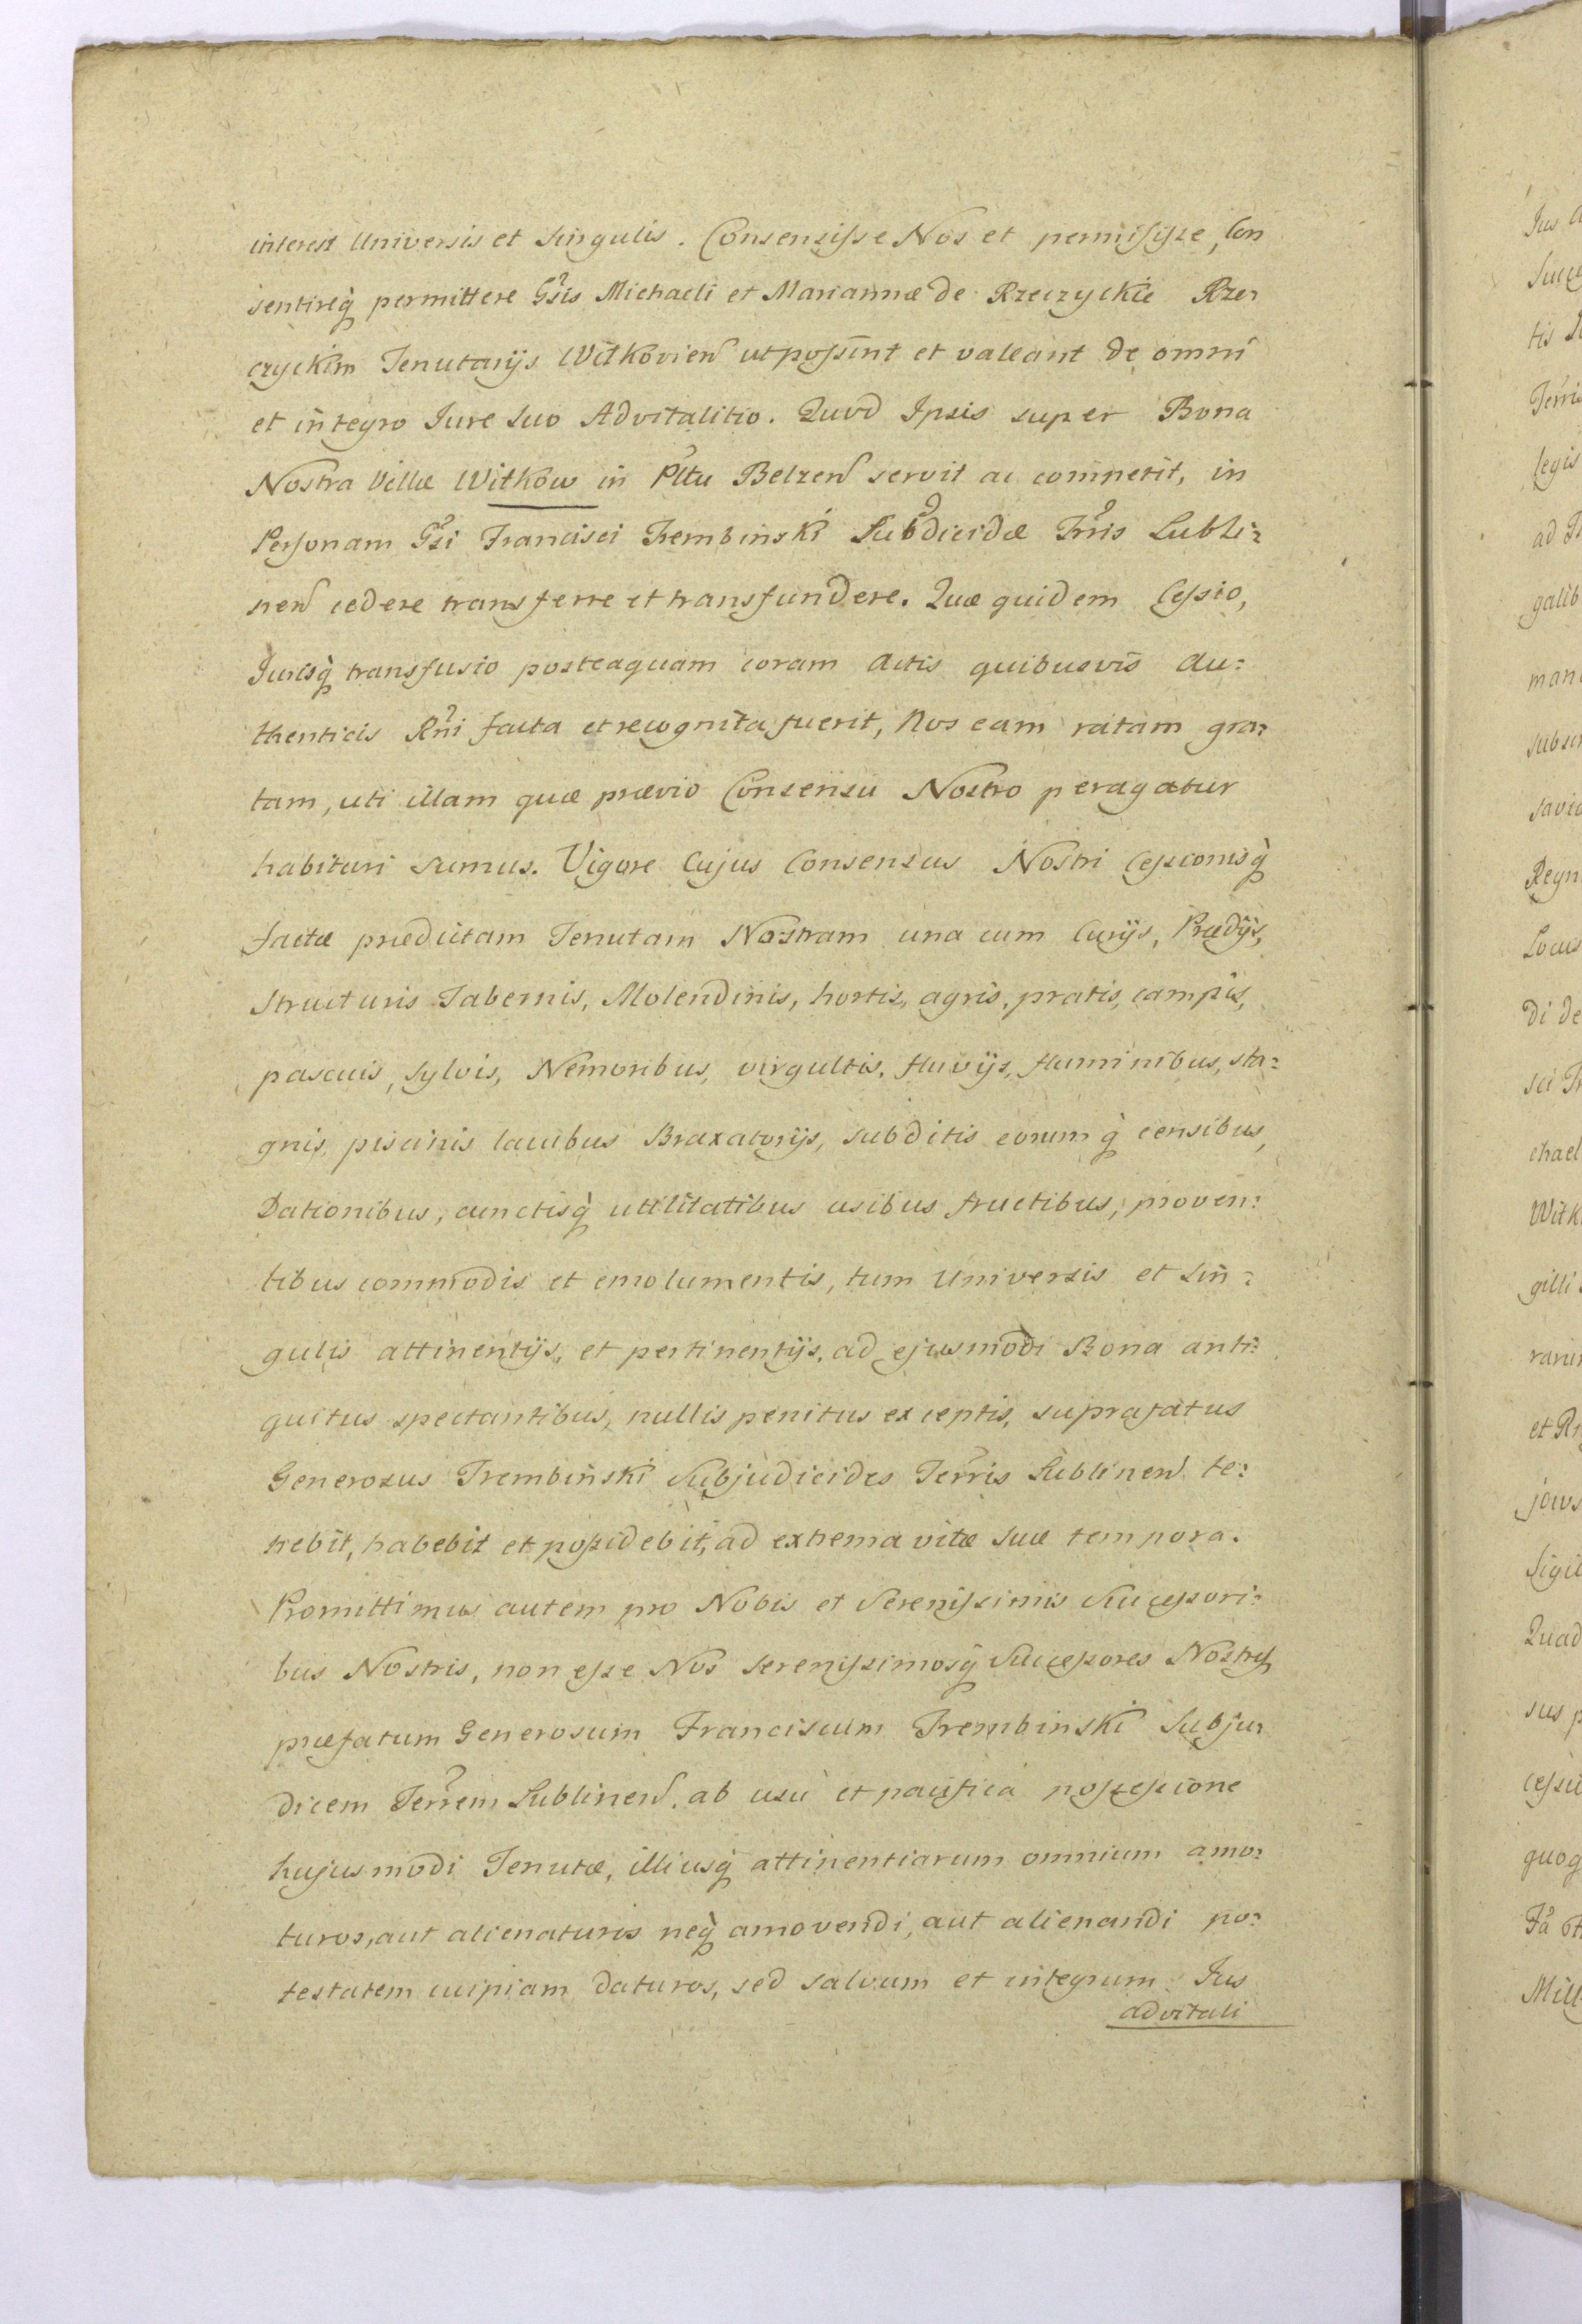 interest Universis et Singulis. Consensisse Nos et permisisse, Con
sentireq̀ permittere Gsis Michaeli et Mariannæ de Rzeczyckie Rze:
czyckim Tenutarijs Witkovien ut possint et valeant de omni
et integro Jure Suo Advitalitio. Quod Ipsis super Bona
Nostra Villæ Witkow in Pltu Belzen servit ac competit, in
Personam Gsi Francisci Trembinski Subdicidæ Trris Lubli:
nen cedere transferre et transfundere. Quæ quidem Cessio,
Jurisq̀ transfusio posteaquam coram Actis quibusvis Au:
thenticis Rni facta et recognita fuerit, Nos eam ratam gra:
tam, uti illam quæ prævio Consensu Nostro peragatur
habituri sumus. Vigore Cujus Consensus Nostri Cessionisq̀
factæ prædictam Tenutam Nostram una cum Curijs, Prædijs,
Structuris Tabernis, Molendinis, hortis, agris, pratis, campis,
pascuis, Sylvis, Nemoribus, virgultis, fluvijs, fluminibus, sta:
gnis, piscinis lacubus Braxatorijs, subditis eorumq̀ censibus,
Dationibus, cunctisq̀ utilitatibus usibus fructibus, proven:
tibus commodis et emolumentis, tum Universis et Sin:
gulis attinentijs, et pertinentijs, ad ejusmodi Bona anti:
quitus spectantibus, nullis penitus exceptis, suprafatus
Generosus Trembinski Subjudicides Terris Lublinen te:
nebit, habebit et possidebit, ad extrema vitæ suæ tempora.
Promittimus autem pro Nobis et Serenissimis Successori:
bus Nostris, non esse Nos Serenissimosq̀ Successores Nostros
præfatum Generosum Franciscum Trembinski Subju:
dicem Terrem Lublinen. ab usu et pacifica possessione
hujusmodi Tenutæ, illiusq̀ attinentiarum omnium amo:
turos, aut alienaturis neq̀ amovendi, aut alienandi po:
testatem cuipiam daturos, sed salvum et integrum Jus
advitali